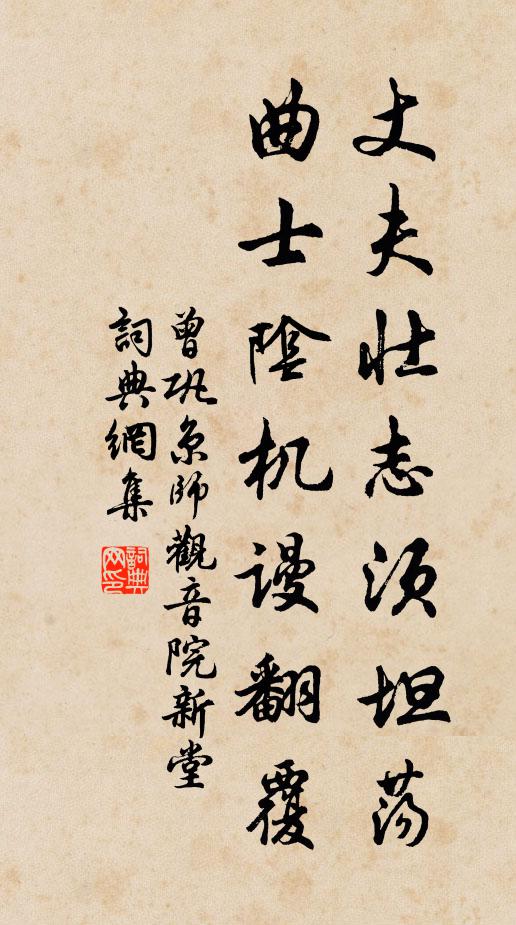 丈夫壮志须坦荡
曲士陰机谩翻覆
曾巩京師觀音院新堂
詞典網集
詞典網印